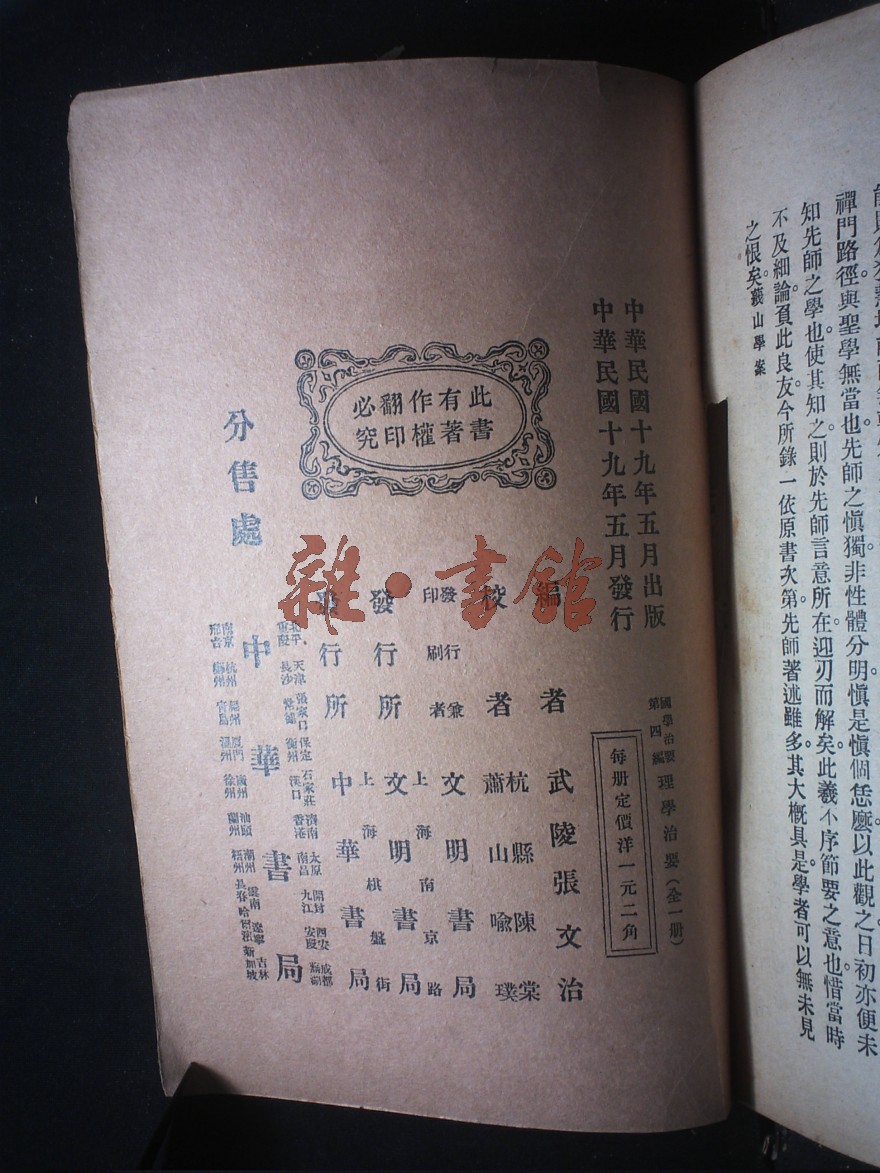 禪門路徑與聖學無當也。先師之愼獨非性體分明愼是愼個恁麽以此觀之日初亦便未
知先師之學也。使其知之。則於先師言意所在。迎刃而解矣。此羲不序節要之意也。惜當時
不及細論。負此良友。今所錄一依原書次第。先師著述雖多。其大概具是。學者可以無未見
之恨矣。蕺山學案
中華民國十九年五月出版
中華民國十九年五月發行
國學治要第四編 理學治要（全一册）
每册定價洋一元二角
此書有著作權翻印必究
編者 武陵張文治
校者 杭縣陳棠
蕭山喩璞
發行兼印刷者 文明書局
上海南京路
發行所 文明書局
上海棋盤街
發行所 中華書局
分售處 中華書局
北平 天津 張家口 保定 石家莊 濟南 太原 開封 西安 成都
重慶 長沙 常德 衡州 漢口 香港 南昌 九江 安慶 蕪湖
南京 杭州 福州 廈門 廣州 汕頭 潮州 雲南 遼寧 吉林
溫州 徐州 蘭州 梧州 長春 哈爾濱 新加坡
雜·書館